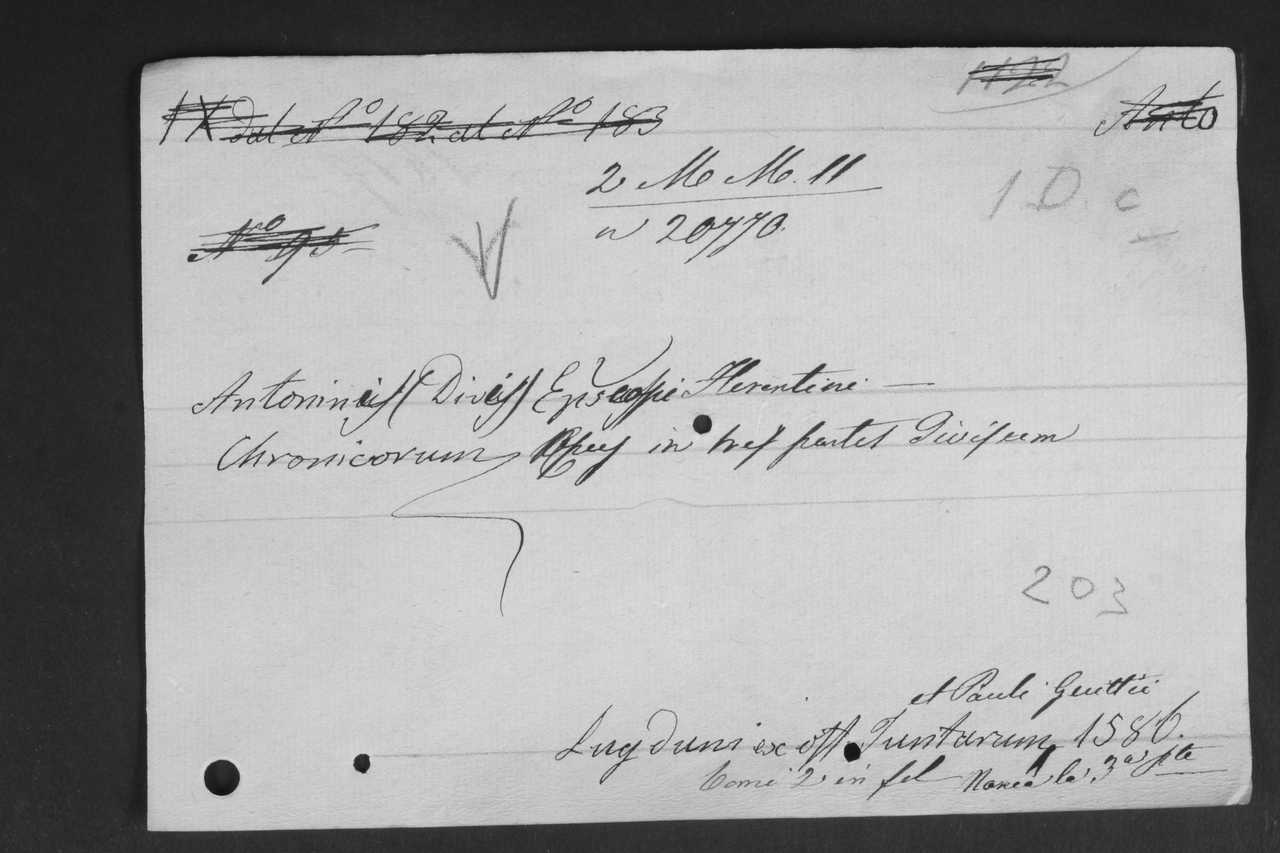 1122
IX dal N° 182 al N° 183
Anto
2 M M. 11
1 D. c
N.ro 95
n 20770.
Antoninus (Divus) Episcopi Florentini —
Chronicorum Opus in tres partes Divisum
203
et Pauli Guittii
Lugduni ex off Juntarum 1586.
tomi 2 in fol Manca la 3a pte